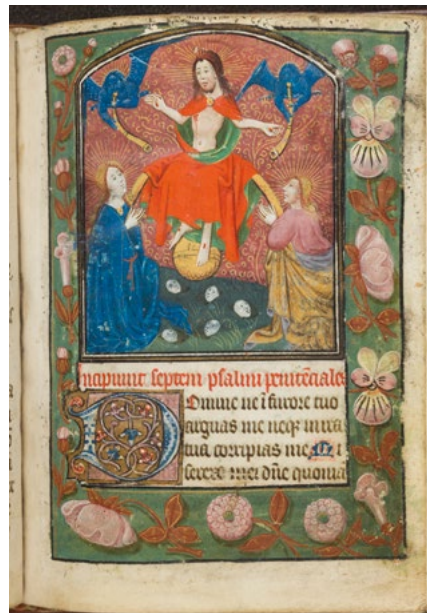 ncipiunt septem psalmi penitēciales
Domine ne ī furore tuo
arguas me neqȝ in ira
tua corripias me Mi
serere mei dn̄e quoniā